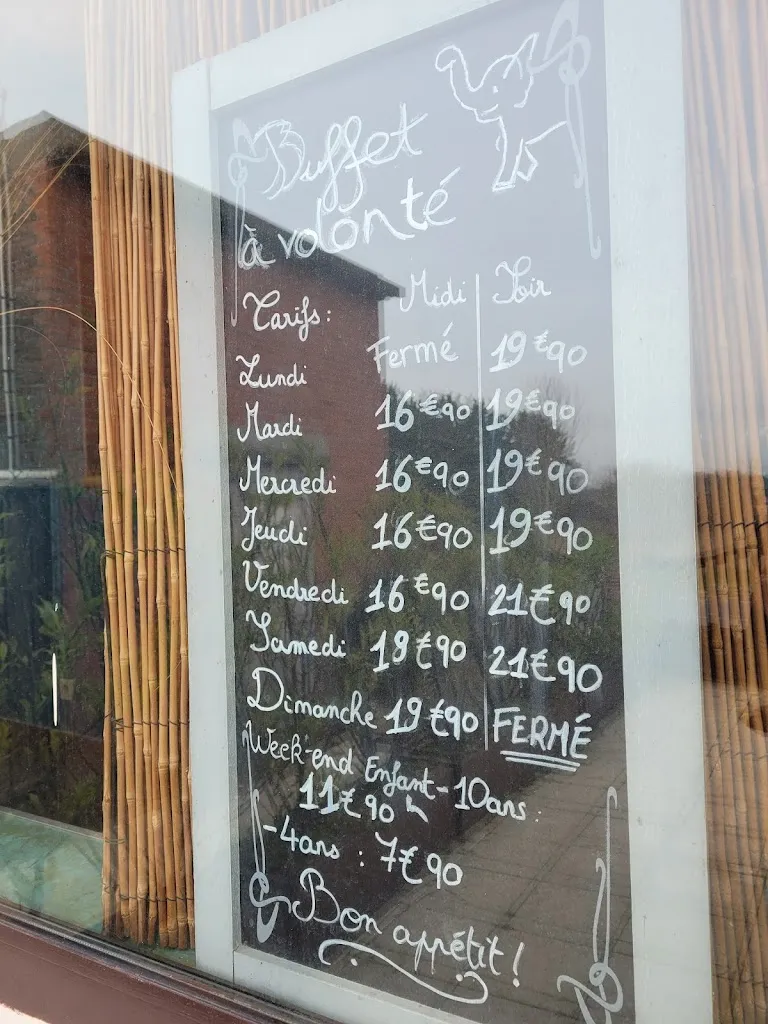 Buffet
à volonté
Tarifs: Midi Soir
Lundi Fermé 19€90
Mardi 16€90 19€90
Mercredi 16€90 19€90
Jeudi 16€90 19€90
Vendredi 16€90 21€90
Samedi 19€90 21€90
Dimanche 19€90 FERMÉ
Week-end Enfant -10ans :
11€90
-4ans : 7€90
Bon appétit !